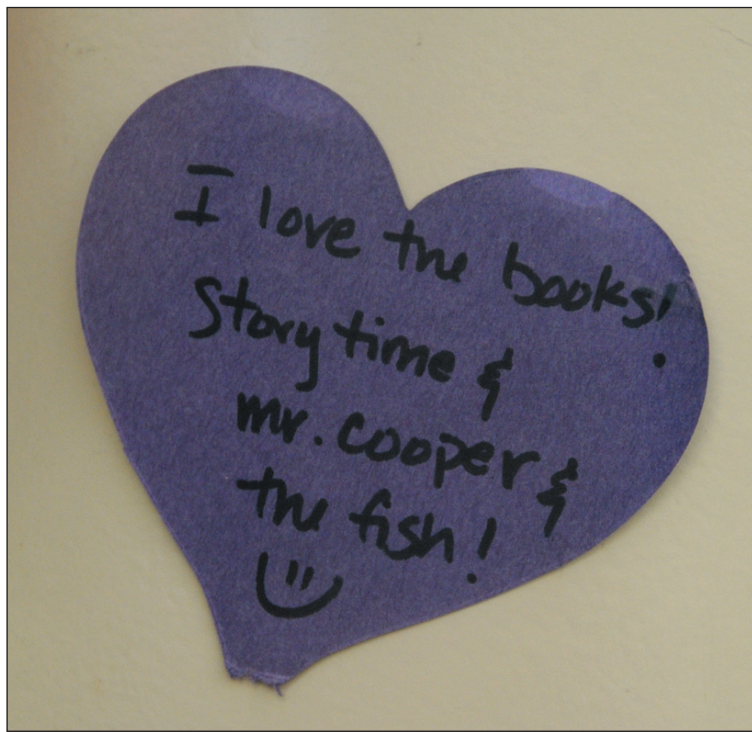 I love the books!
Storytime &
mr. cooper &
the fish!